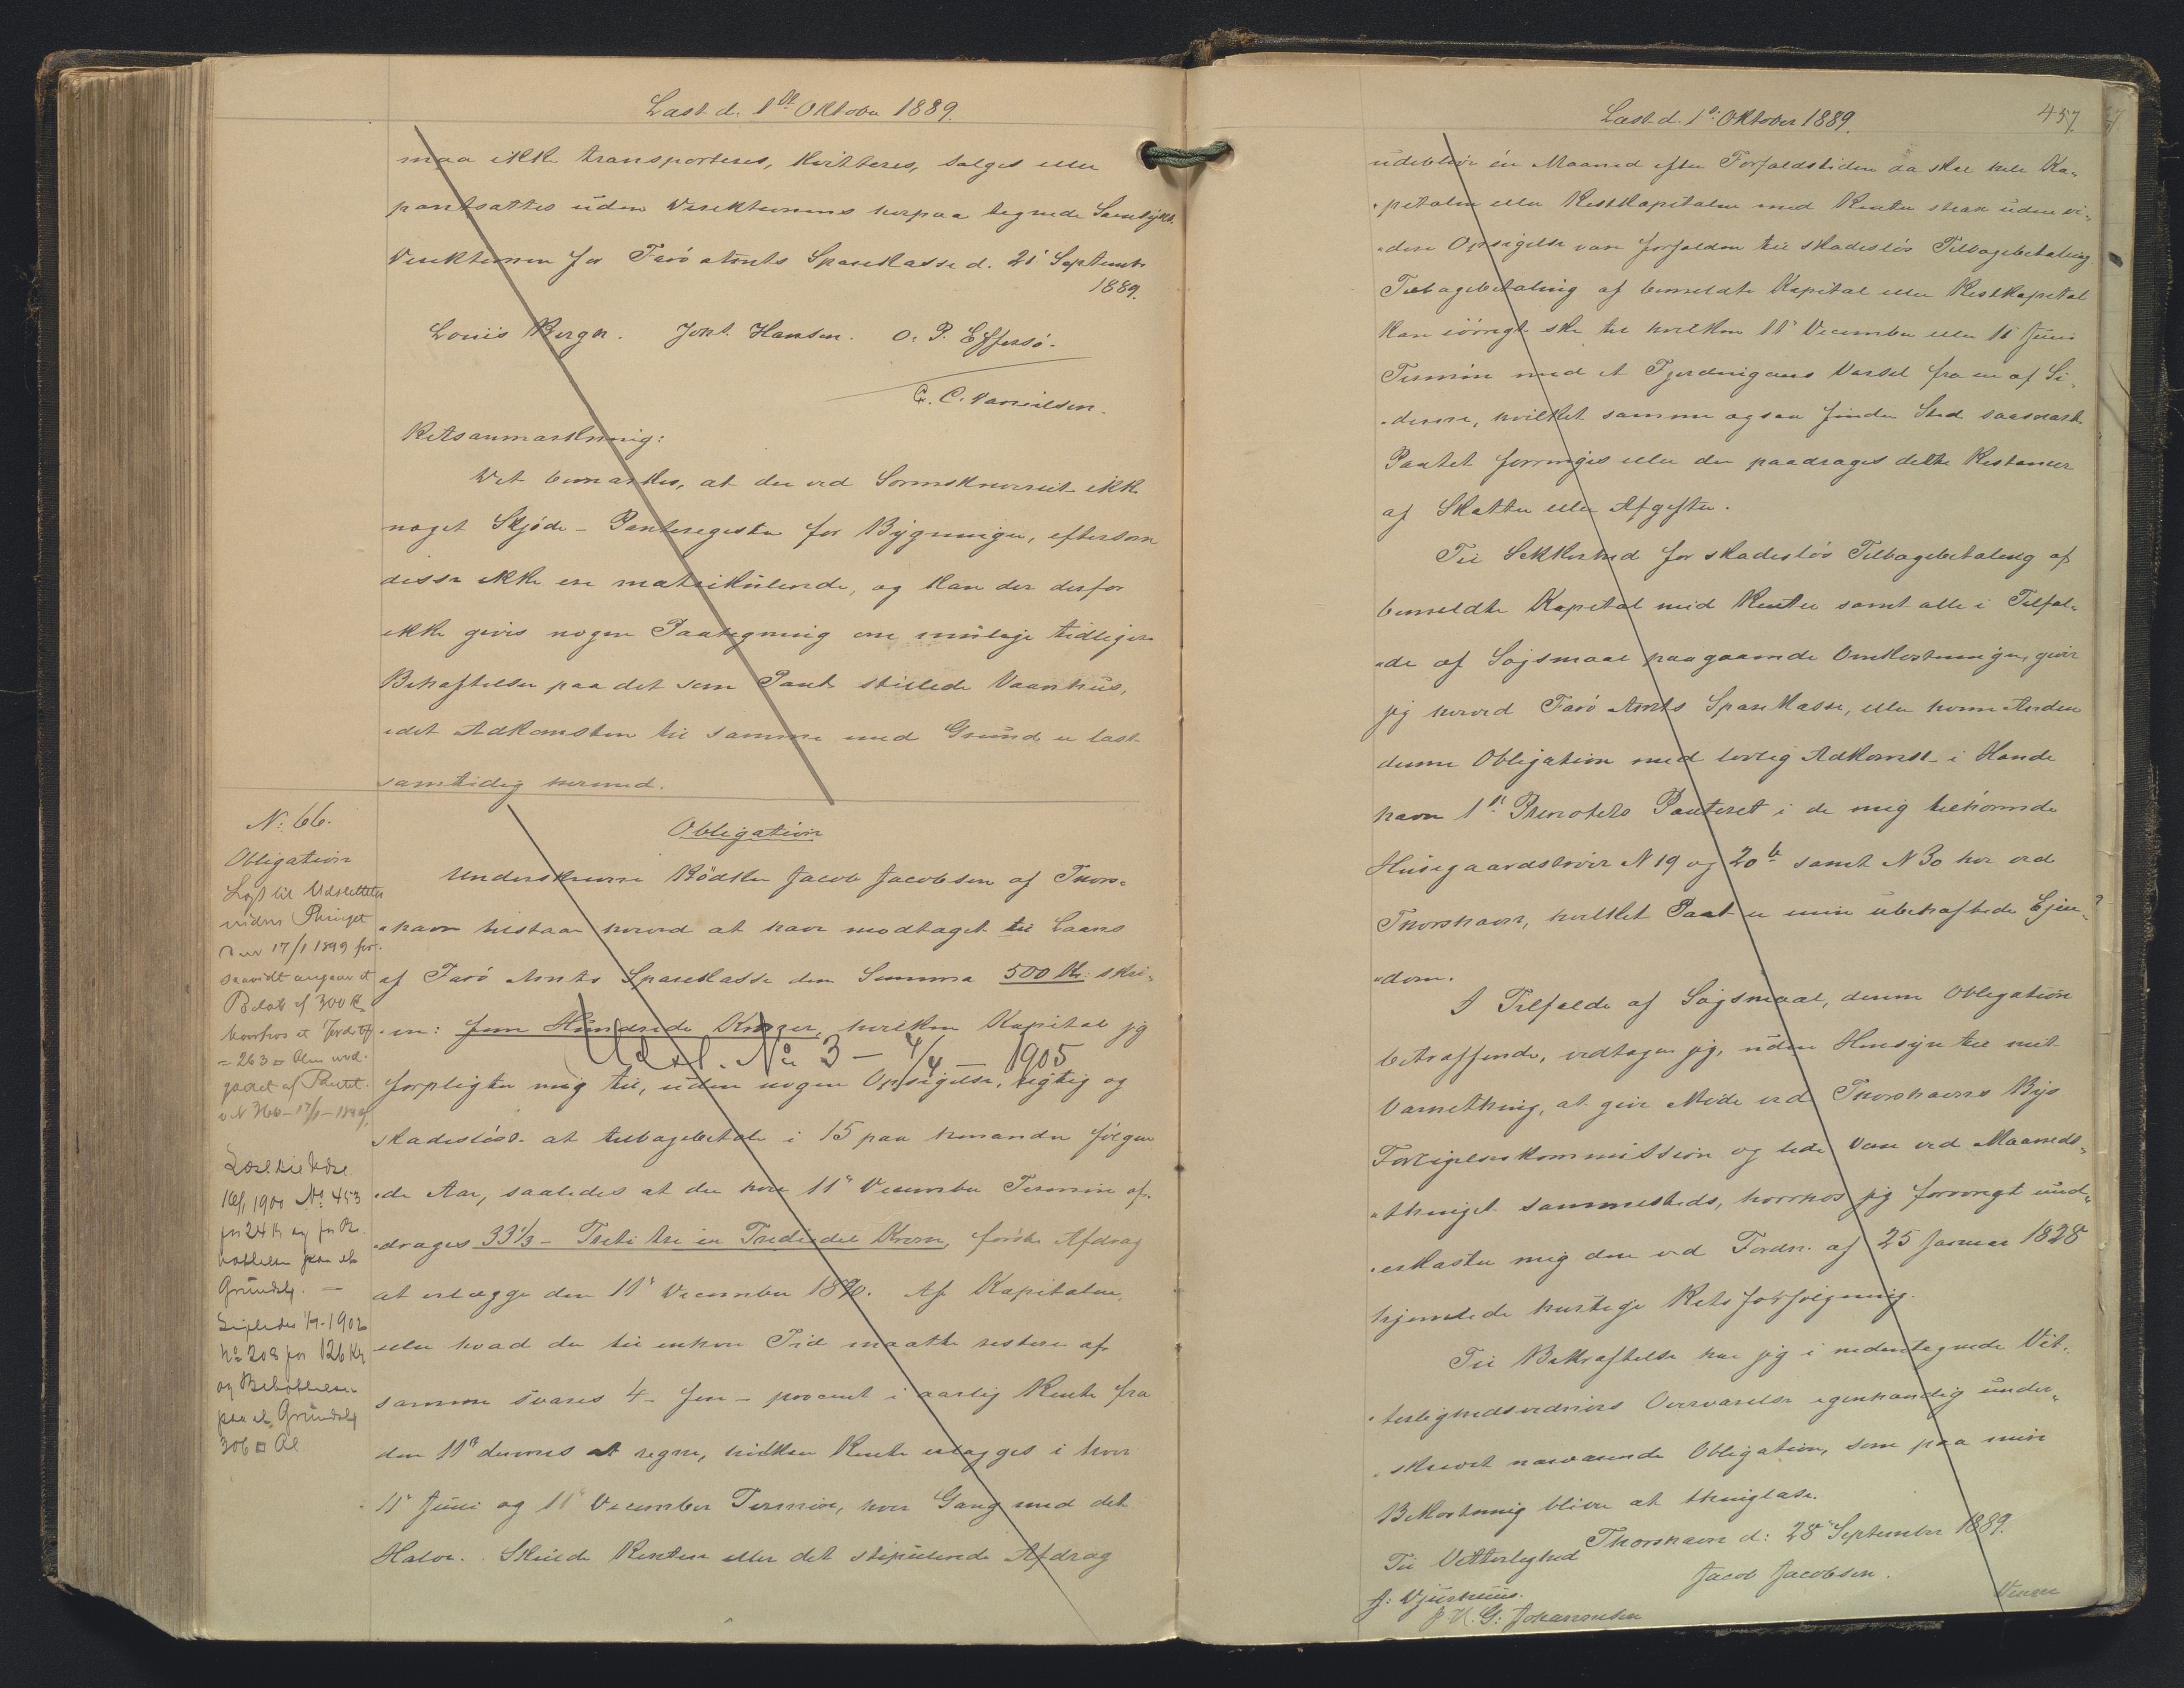 Læst d. 1ste Oktober 1889.
maa ikke transporteres, kvitteres, sælges eller
pantsættes uden Direktionens herpaa tegnede Samtykke.
Direktionen for Færø Amts Sparekasse d. 21' September
1889.
Louis Bergh. Joh. Hansen. O. P. Effersø.
C. C. Danielsen.
Retsanmærkning:
Det bemærkes, at der ved Sorenskriveriet ikke
noget Skjøde- Panteregister for Bygninger, eftersom
disse ikke ere matrikulerede, og kan der derfor
ikke gives nogen Paategning om mulige tidligere
Behæftelser paa det som Pant stillede Vaanhus,
idet Adkomsten til samme med Grund er læst
samtidig hermed.
N: 66.
Obligation
Læst til Udslettelse
inden Thinget
den 17/1 1899 for-
saavidt angaar et
Beløb af 300 Kr
hvorhos et Jordst.
= 263 □ Alen ud-
gaaet af Pantet.
Læst til Udsl.
1900 No 453
for 24 Kr og for Be-
hæftelsen paa et
Grundst. —
1902
No 208 for 126 Kr
og Behæftelsen
paa et Grundst.
306 □ Al
Obligation
Underskrevne Bødker Jacob Jacobsen af Thors-
havn tilstaar herved at have modtaget til Laans
af Færø Amts Sparekasse den Summa 500 Kr. skri-
ver: Fem Hundrede Kroner, hvilken Kapital jeg
Udsl. No 3 — 4/4 — 1905
forpligter mig til, uden nogen Opsigelse, rigtig og
skadesløst at tilbagebetale i 15 paa hinanden følgen-
de Aar, saaledes at der hver 11' December Termin af-
drages 33 1/3 - Treti tre en Trediedel Kroner, første Afdrag
at erlægge den 11' December 1890. Af Kapitalen,
eller hvad der til enhver Tid maatte restere af
samme svares 4 - fire - procent i aarlig Rente fra
den 11' dennes at regne, hvilken Rente erlægges i hver
11' Juni og 11' December Termin, hver Gang med det
Halve. Skulde Renten eller det stipulerede Afdrag
Læst d. 1ste Oktober 1889.
457
udeblive én Maaned efter Forfaldstiden da skal hele Ka-
pitalen eller Restkapitalen med Renter strax uden vi-
dere Opsigelse være forfalden til skadesløs Tilbagebetaling.
Tilbagebetaling af bemeldte Kapital eller Restkapital
kan iøvrigt ske til hvilken 11' December eller 11' Juni
Termin med et Fjerdingaars Varsel fra en af Si-
derne, hvilket samme ogsaa finder Sted saasnart
Pantet forringes eller der paadrages dette Restancer
af Skatter eller Afgifter.
Til Sikkerhed for skadesløs Tilbagebetaling af
bemeldte Kapital med Renter samt alle i Tilfæl-
de af Søgsmaal paagaaende Omkostninger, giver
jeg herved Færø Amts Sparekasse, eller hvem Anden
denne Obligation med lovlig Adkomst i Hænde
haver 1ste Prioritets Panteret i de mig tilhørende
Husegaardstvær N 19 og 20 b samt N 30 her ved
Thorshavn, hvilket Pant er min ubehæftede Ejen-
dom.
I Tilfælde af Søgsmaal, denne Obligation
betræffende, vedtager jeg, uden Hensyn til mit
Værnething, at give Møde ved Thorshavns Byes
Forligelseskommission og lide Dom ved Maaneds-
thinget sammesteds, hvorhos jeg forøvrigt und-
erkaster mig den ved Fordn. af 25 Januar 1828
hjemlede hurtige Retsforfølgning.
Til Bekræftelse har jeg i nedentegnede Vit-
terlighedsvidners Overværelse egenhændig under-
skrevet nærværende Obligation, som paa min
Bekostning bliver at thinglæse.
Thorshavn d: 28' September 1889.
Til Vitterlighed
Jacob Jacobsen.
J: Djurhuus.
J. H. G: Johannesen
Denne